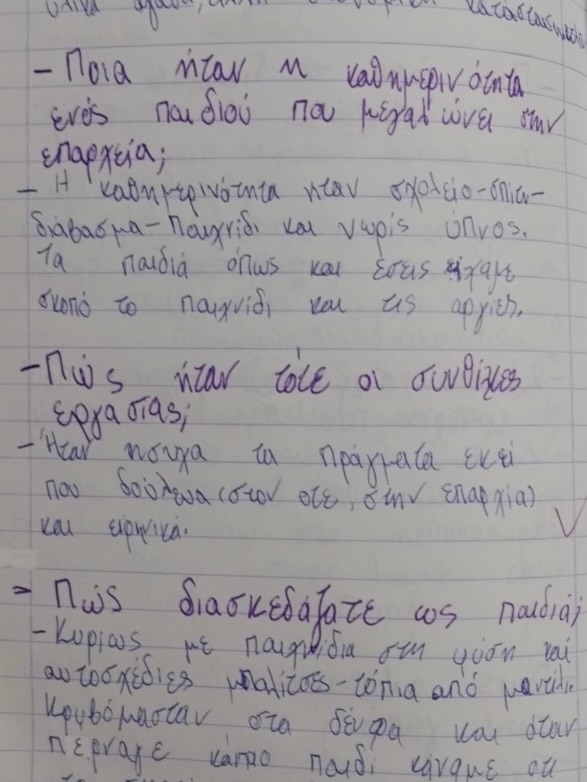 υλικά αγαθά, κατάσταση
- Ποια ήταν η καθημερινότητα
ενός παιδιού που μεγαλώνει στην
επαρχεία;
- Η καθημερινότητα ήταν σχολείο-σπίτι-
διάβασμα-παιχνίδι και νωρίς ύπνος.
Τα παιδιά όπως και εσείς είχαμε
σκοπό το παιχνίδι και τις αργίες.
- Πώς ήταν τότε οι συνθήκες
εργασίας;
- Ήταν ήσυχα τα πράγματα εκεί
που δούλευα (στον οτε, στην επαρχία)
και ειρηνικά.
- Πώς διασκεδάζατε ως παιδιά;
- Κυρίως με παιχνίδια στη φύση και
αυτοσχέδιες μπαλίτσες-τόπια από μαντίλι.
Κρυβόμασταν στα δένδρα και όταν
πέρναγε κάποιο παιδί κάναμε ότι